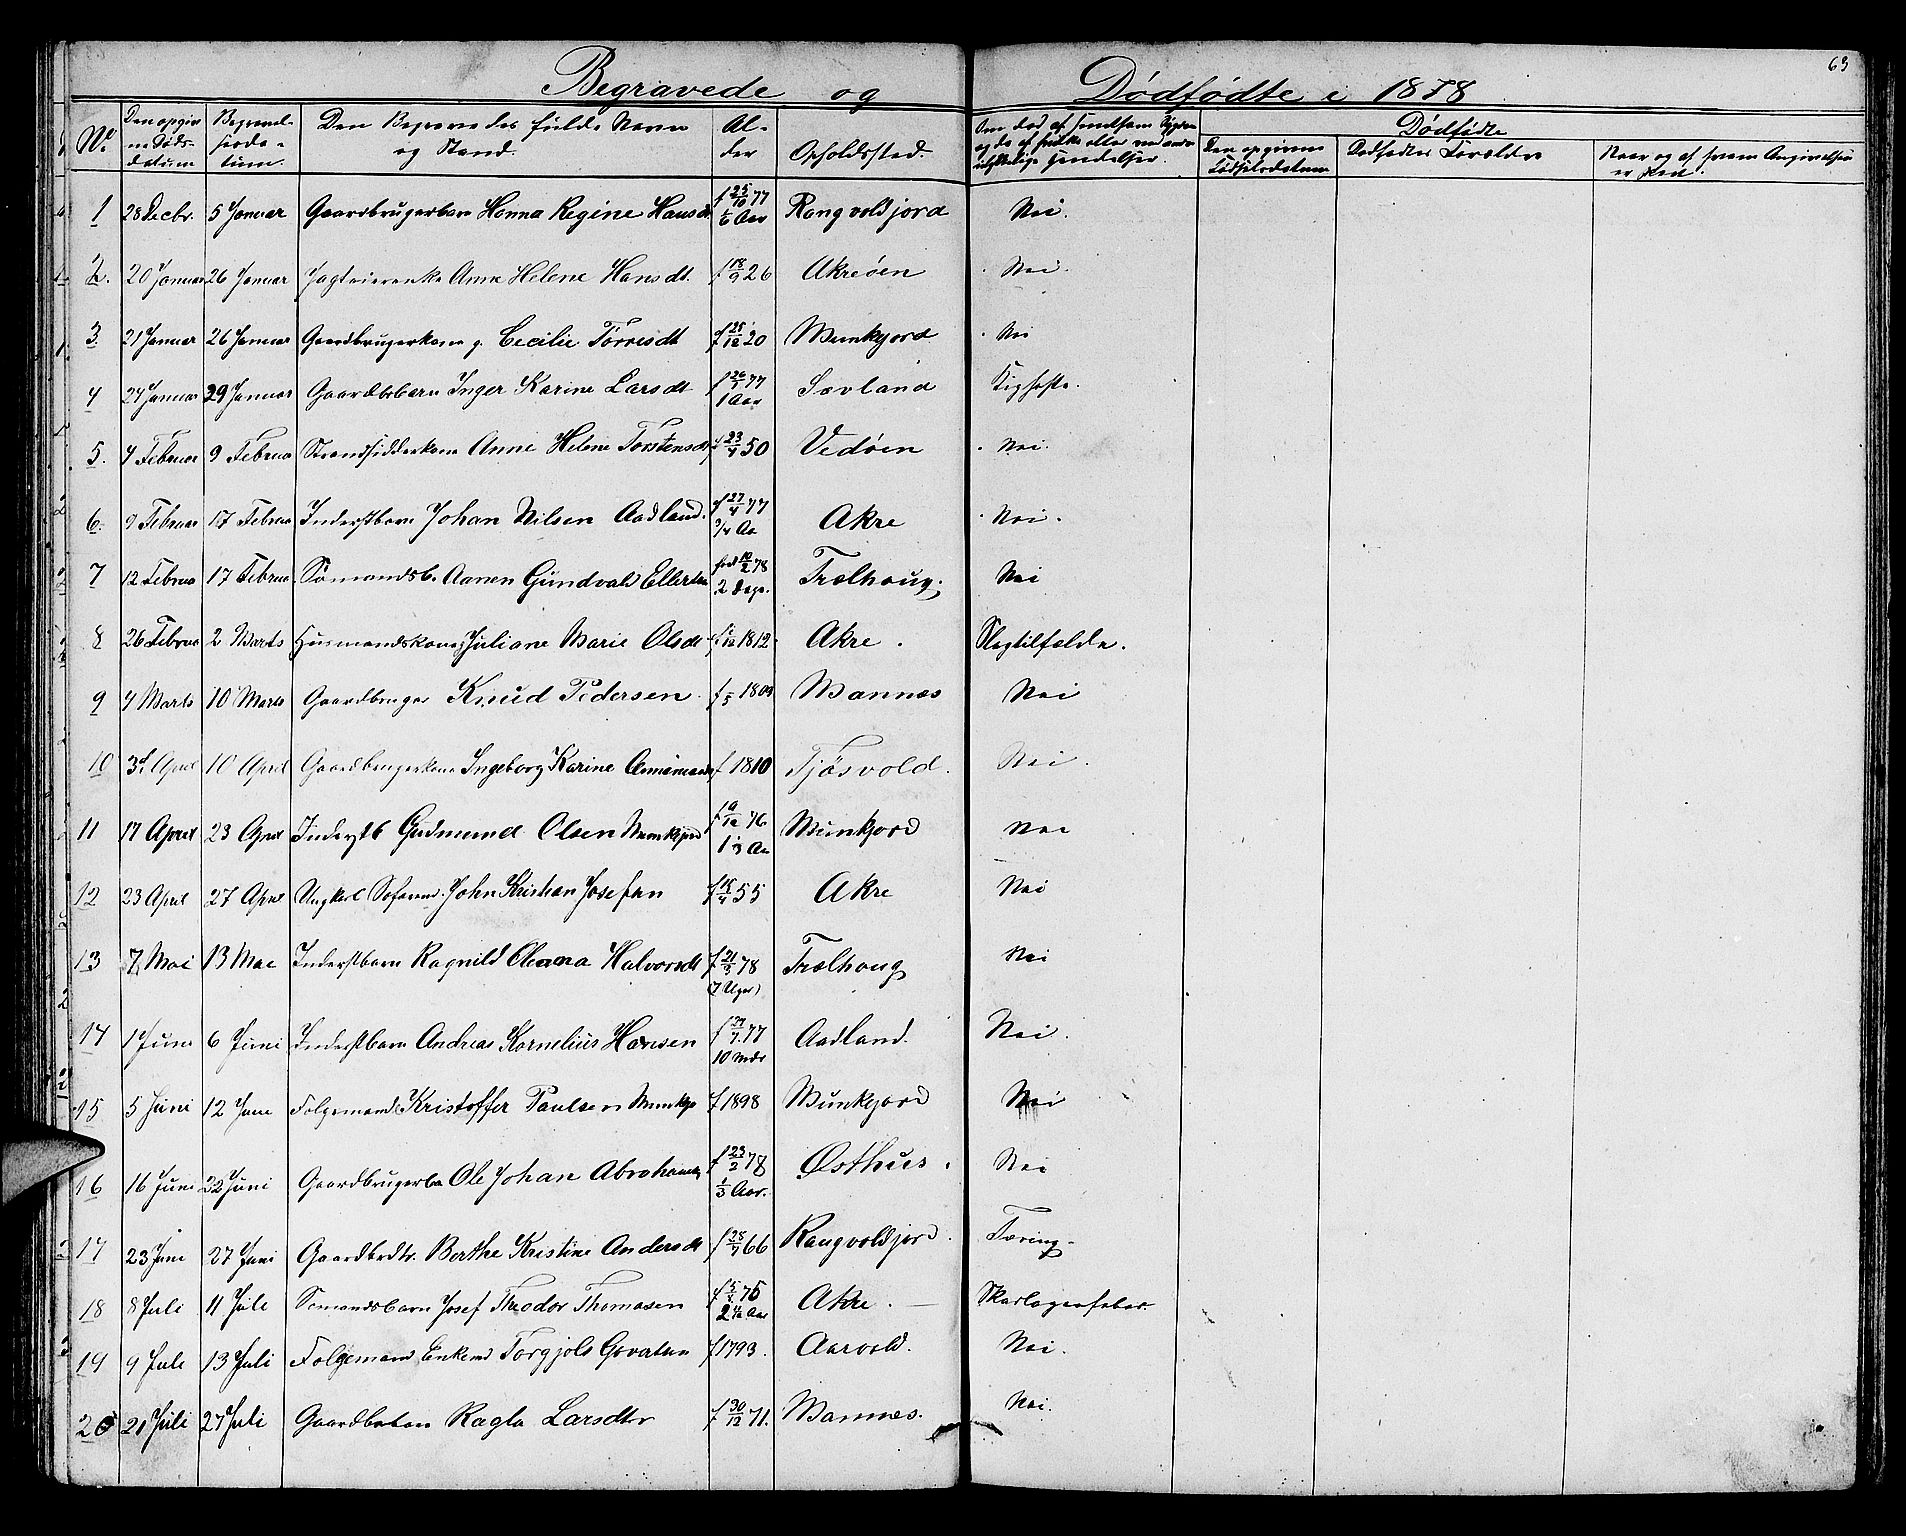 63
Begravede og Dødfødte i 1878
No. Den opgivne Døds-datum Begravel-sesda-tum. Den Begravedes fulde Navn og Stand. Al-der Opholdssted. Dødfødte
Den opgivne Fødselsdatum Dødfødtes Forældre Naar og af hvem Angivelsen er skeet.
1 28 Decbr. 5 Januar Gaardbrugerbarn Hanna Regine Hansdt f 25/10 77 1/6 Aar Rangvoldsjord Nei.
2. 20 Januar 26 Januar Jagteierenke Anna Helene Hansdt. f 18/9 26 Akreøen Nei.
3. 21 Januar 26 Januar Gaardbrugerkone g. Cecilie Tørresdt f 25/12 20 Munkjord Nei
4 24 Januar 29 Januar Gaardbrbarn Inger Karine Larsdt f 26/1 77 1 Aar Sævland Kighoste.
5. 4 Februar 9 Februa Strandsidderkone Anne Helene Torstensdt f 23/4 50 Vedøen Nei.
6. 9 Februar 17 Februa Inderstbarn Johan Nilsen Aadland. f 27/4 77 3/4 Aa Akre Nei.
7 12 Februa 17 Februa Sømandsb. Aanen Gundvald Ellertsen fød 10/2 78 2 Dage. Trælhoug. Nei
8 26 Februa 2 Marts Husmandskone Juliane Marie Olsdt f /12 1812 Akre. Slagtilfælde.
9 4 Marts 10 Marts Gaardbruger Knud Pedersen f 5 1809 Mannes Nei
10 3d April 10 April Gaardbrugerkone Ingeborg Karine f 1810 Tjøsvold. Nei.
11 17 April 23 April Inderstb Gudmund Olsen Munkjord f 9/12 76 1 1/3 Aa Munkjord Nei
12 23 April 27 April Ungkarl Søfarend. John Kristian Josefsen f 18/4 55 Akre Nei
13 7 Mai 13 Mai Inderstbarn Ragnild Oleana Halvorsdt f 21/3 78 (7 Uger) Trælhoug Nei
14 1 Juni 6 Juni Inderstbarn Andreas Kornelius Hansen f 77 10 Mdr Aadland. Nei.
15 5 Juni 12 Juni Folgemand Kristoffer Paulsen Munkjo f 1898 Munkjord Nei
16 16 Juni 22 Juni Gaardbrugerba Ole Johan Abrahamsen f 23/2 78 1/3 Aar. Østhus. Nei
17 23 Juni 27 Juni Gaardbrdtr. Berthe Kristine Andersdt f 25/7 66 Rangvoldsjord. Tæring.
18 8 Juli 11 Juli Sømandsbarn Josef Theodor Thomasen f 76 Akre. Skarlagensfeber.
19 9 Juli 13 Juli Folgemand Enkemd Torgjols Govertsen f 1793. Aarvold. Nei.
20 21 Juli 27 Juli Gaardbrbarn Ragla Larsdtr f 30/12 71. Mannes. Nei.